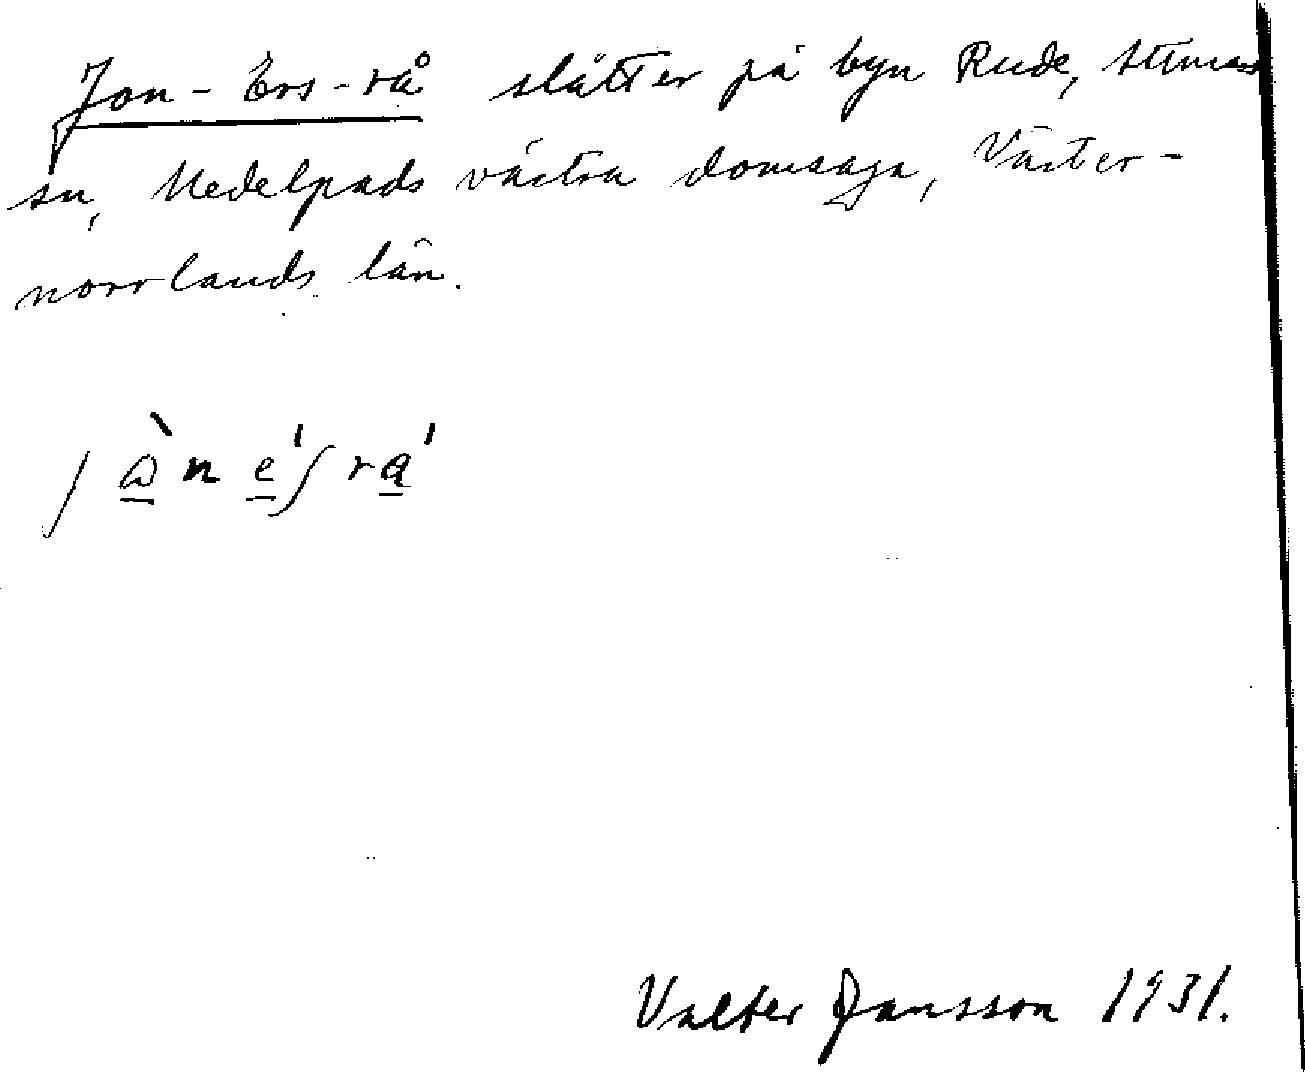 Jon-Ers-rå slåtter på byn Rude, Attmar
sn, Medelpads västra domsaga, Väster-
norrlands län.
Valter Jansson 1931.